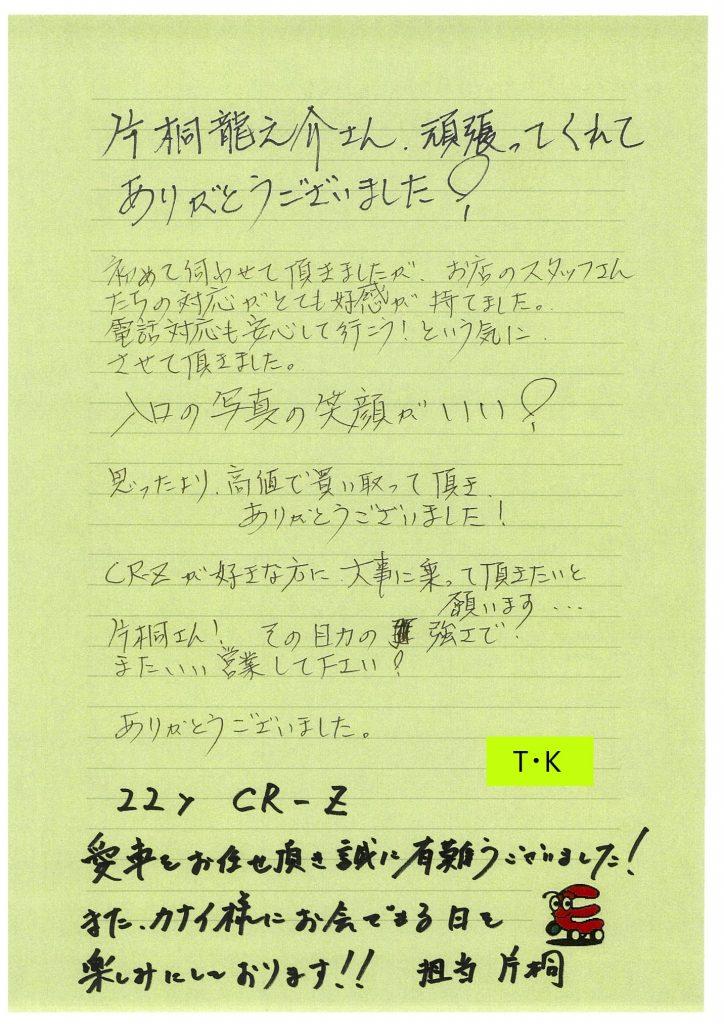 片桐龍之介さん、頑張ってくれて
ありがとうございました!
初めて伺わせて頂きましたが、お店のスタッフさん
たちの対応がとても好感が持てました。
電話対応も安心して行こう!という気に
させて頂きました。
入口の写真の笑顔がいい!
思ったより、高値で買い取って頂き、
ありがとうございました!
CR-Zが好きな方に、大事に乗って頂きたいと
願います...
片桐さん! その目力の 強さで、
またいい営業して下さい!
ありがとうございました。
T・K
22y CR-Z
愛車をお任せ頂き誠に有難うございました!
また、カナイ様にお会できる日を
楽しみにしております!! 担当 片桐